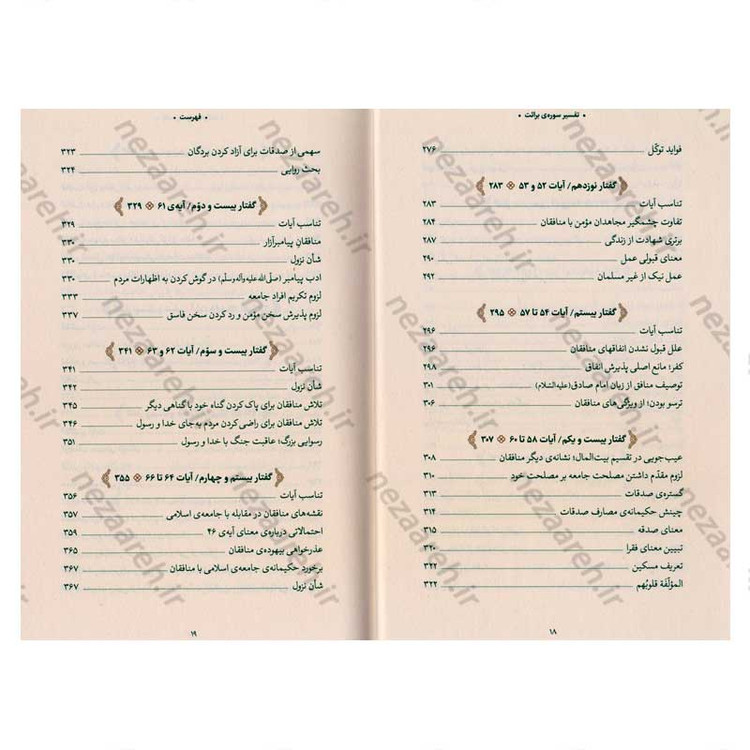 • تفسیر سوره‌ی برائت •
فواید توکّل ۲۷۶
گفتار نوزدهم/ آیات ۵۲ و ۵۳ ۲۸۳
تناسب آیات ۲۸۳
تفاوت چشمگیر مجاهدان مؤمن با منافقان ۲۸۴
برتری شهادت از زندگی ۲۸۷
معنای قبولی عمل ۲۹۰
عمل نیک از غیر مسلمان ۲۹۲
گفتار بیستم/ آیات ۵۴ تا ۵۷ ۲۹۵
تناسب آیات ۲۹۶
علل قبول نشدن انفاقهای منافقان ۲۹۶
کفر؛ مانع اصلی پذیرش انفاق ۲۹۸
توصیف منافق از زبان امام صادق(علیه‌السّلام) ۳۰۱
ترسو بودن؛ از ویژگی‌های منافقان ۳۰۶
گفتار بیست و یکم/ آیات ۵۸ تا ۶۰ ۳۰۷
عیب‌جویی در تقسیم بیت‌المال؛ نشانه‌ی دیگر منافقان ۳۰۸
لزوم مقدّم داشتن مصلحت جامعه بر مصلحت خود ۳۱۰
گستره‌ی صدقات ۳۱۳
چینش حکیمانه‌ی مصارف صدقات ۳۱۴
معنای صدقه ۳۱۵
تبیین معنای فقرا ۳۲۰
تعریف مسکین ۳۲۲
المؤلّفة قلوبُهم ۳۲۲
۱۸
• فهرست •
سهمی از صدقات برای آزاد کردن بردگان ۳۲۳
بحث روایی ۳۲۴
گفتار بیست و دوّم/ آیه‌ی ۶۱ ۳۲۹
تناسب آیات ۳۲۹
منافقانِ پیامبرآزار ۳۳۰
شأن نزول ۳۳۰
ادب پیامبر (صلّی‌الله‌علیه‌وآله‌وسلّم) در گوش کردن به اظهارات مردم ۳۳۰
لزوم تکریم افراد جامعه ۳۳۳
لزوم پذیرش سخن مؤمن و رد کردن سخن فاسق ۳۳۷
گفتار بیست و سوّم/ آیات ۶۲ و ۶۳ ۳۴۱
تناسب آیات ۳۴۱
شأن نزول ۳۴۲
تلاش منافقان برای پاک کردن گناه خود با گناهی دیگر ۳۴۵
تلاش منافقان برای راضی کردن مردم به‌جای خدا و رسول ۳۴۶
رسوایی بزرگ؛ عاقبت جنگ با خدا و رسول ۳۵۱
گفتار بیستم و چهارم/ آیات ۶۴ تا ۶۶ ۳۵۵
تناسب آیات ۳۵۶
نقشه‌های منافقان در مقابله با جامعه‌ی اسلامی ۳۵۷
احتمالاتی درباره‌ی معنای آیه‌ی ۴۶ ۳۵۹
عذرخواهی بیهوده‌ی منافقان ۳۶۵
برخورد حکیمانه‌ی جامعه‌ی اسلامی با منافقان ۳۶۷
شأن نزول ۳۶۷
۱۹
nezaareh.ir